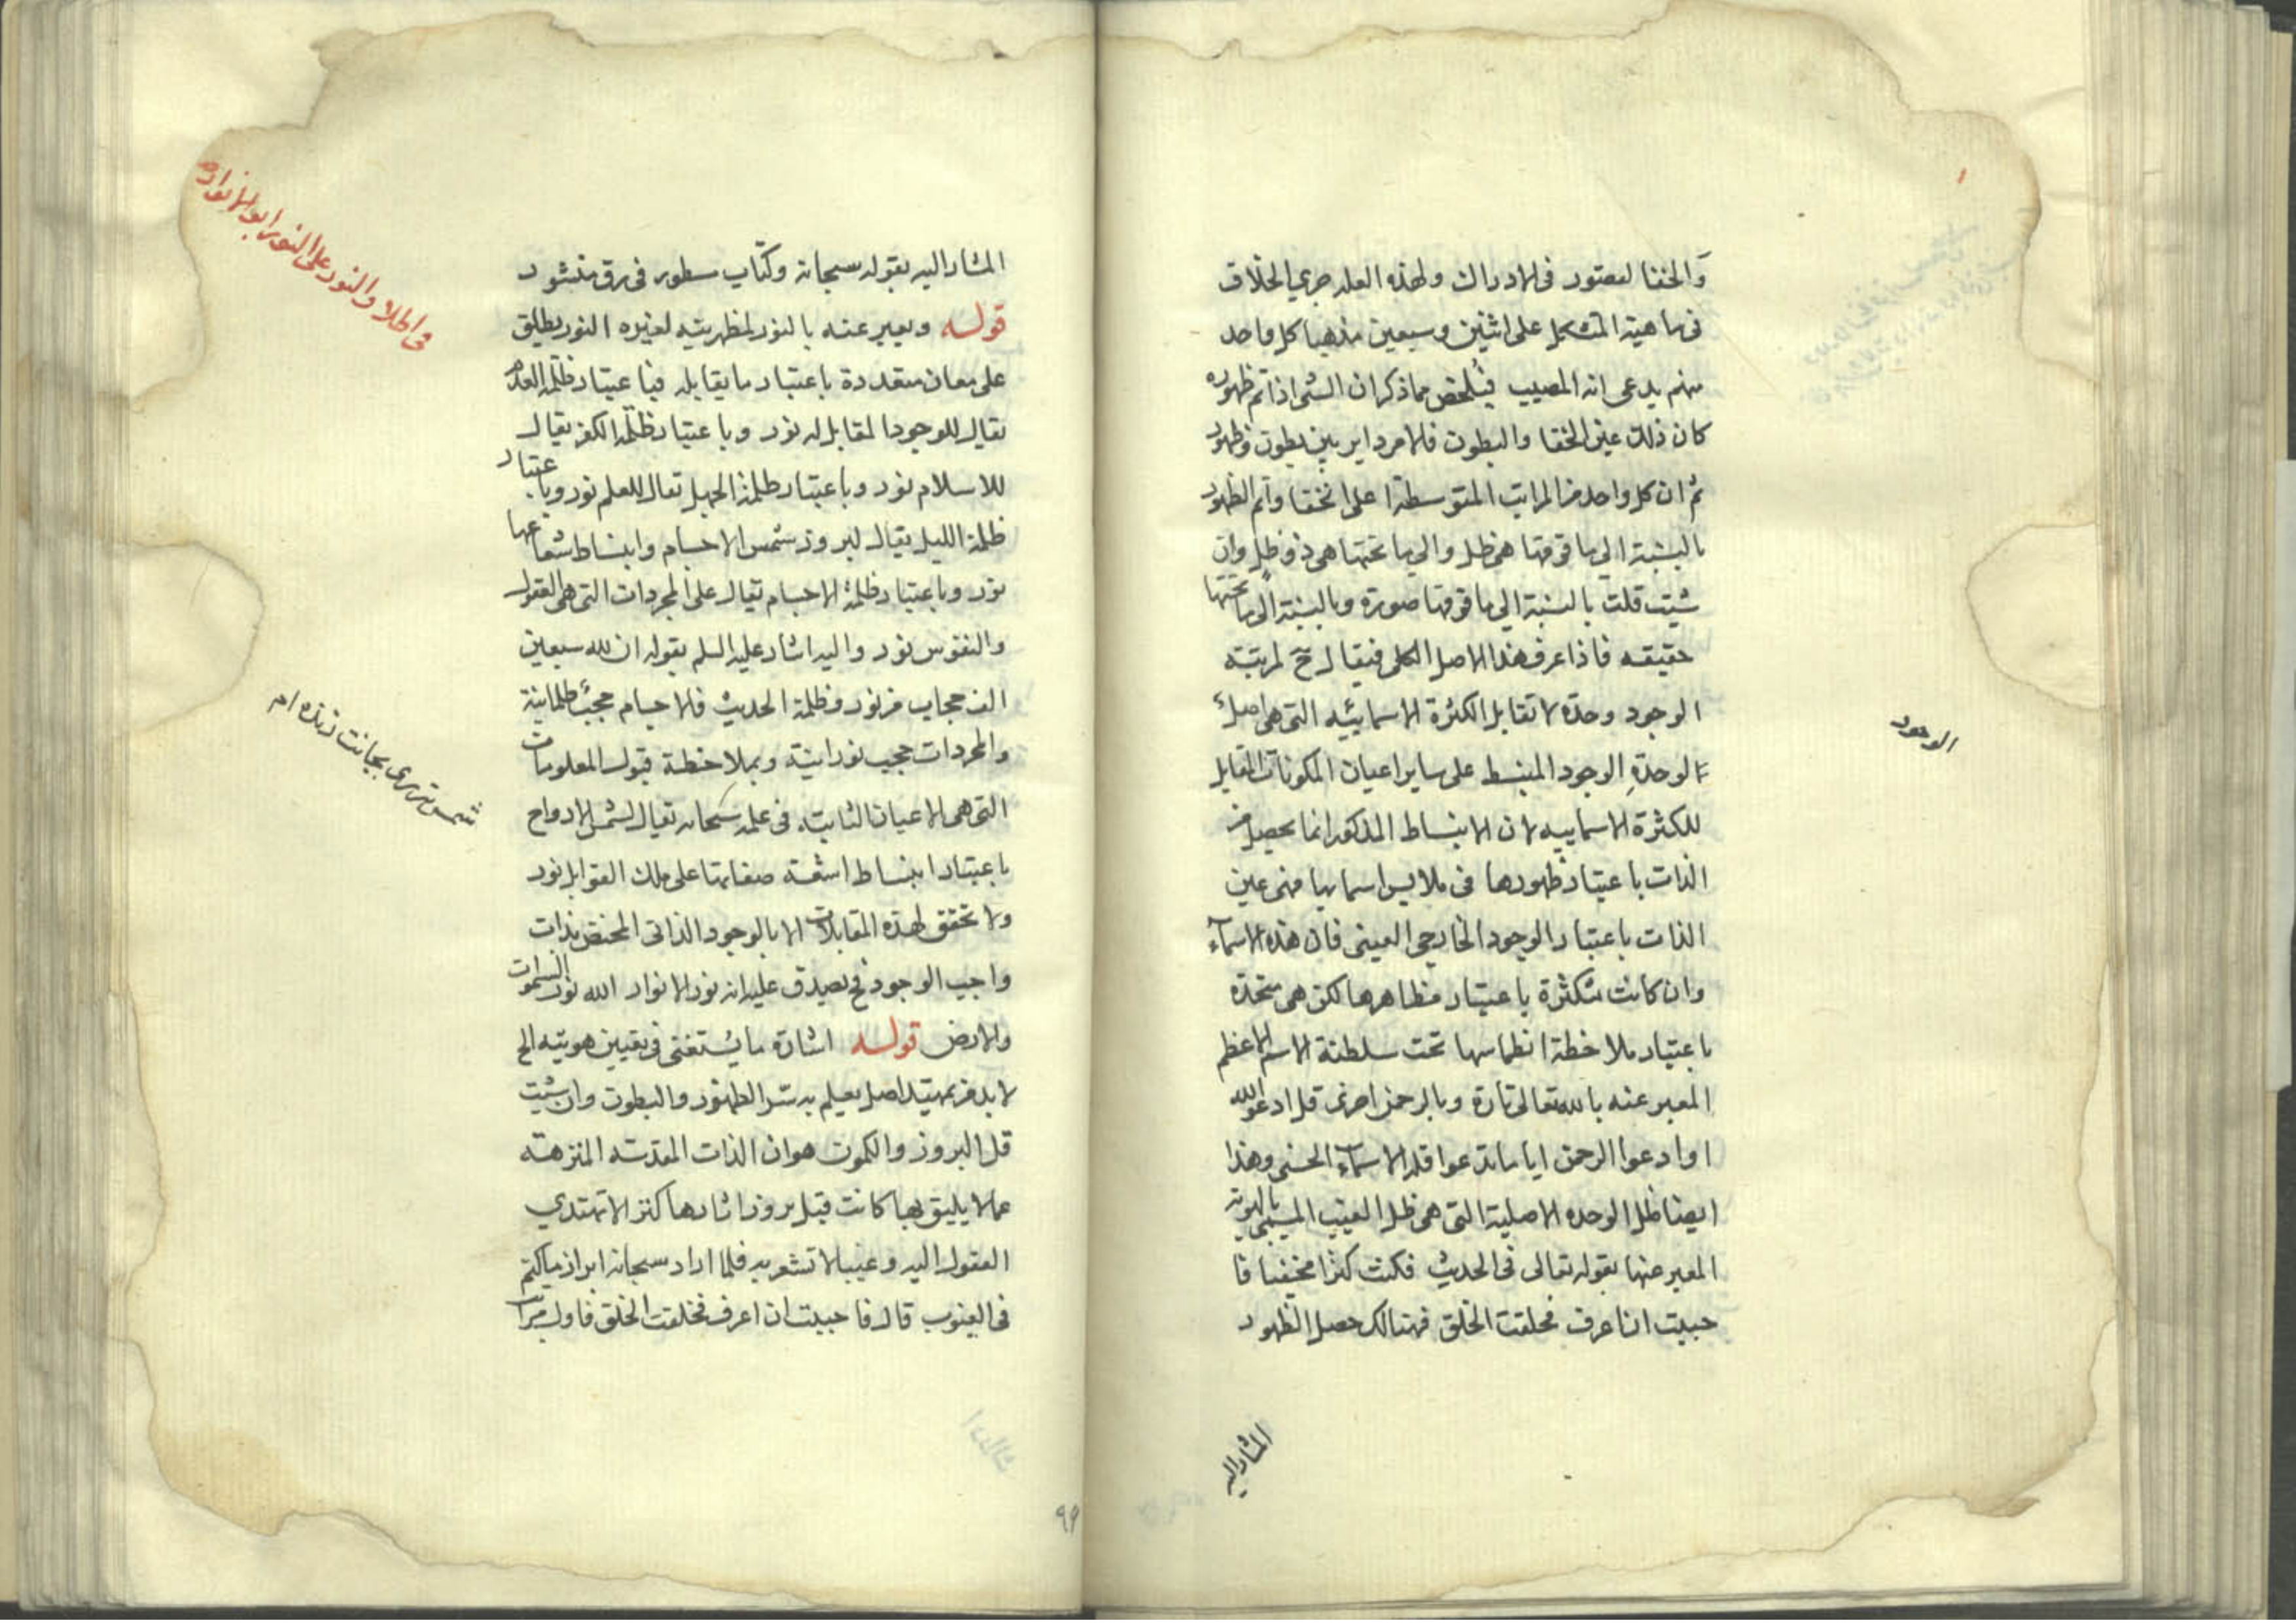 والخفا لقصور فى الادراك ولهذه العله جري الخلاف
فى ماهية المشكل على اثنين وسبعين مذهبا كل واحد
منهم يدعى انه المصيب فتلخص مما ذكر ان الشى اذا تم ظهوره
كان ذلك عين الخفا والبطون فالامر داير بين بطون وظهور
ثم ان كل واحد من المراتب المتوسطة اعلى الخفا واتم الظهور
بالنسبة الى ما فوقها هى ظل والى ما تحتها هى ذو ظل وان
شيت قلت بالنسبة الى ما فوقها صورة وبالنسبة الى ما تحتها
حقيقه فاذا عرف هذا الاصل الكلى فيقال ح لمرتبته
الوجود وحدة لا تقابل الكثرة الاسمائيه التى هى اصل
الوحدة الوجود المنبسط على ساير اعيان المكونات المقابل
للكثرة الاسماييه لان الانبساط المذكور انما يحصل من
الذات باعتبار ظهورها فى ملابس اسمايها فهى عين
الذات باعتبار الوجود الخارجى العينى فان هذه الاسمآء
وان كانت متكثرة باعتبار مظاهرها لكن هى متحدة
باعتبار ملاخظة انطماسها تحت سلطنة الاسم الاعظم
المعبر عنه بالله تعالى تارة وبالرحمن اخرى قل ادعوا الله
او ادعوا الرحمن ايا ما تدعوا فله الاسمآء الحسنى وهذا
ايضا ظل الوحده الاصلية التى هى ظل الغيب المسمى بالهوية
المعبر عنها بقوله تعالى فى الحديث فكنت كنزا مخفيا فا
حببت ان اعرف فخلقت الخلق فهنالك حصل الظهور
الوجود
المشار اليه
المشار اليه بقوله سبحانه وكتاب مسطور فى رق منشور
قوله ويعبر عنه بالنور لمظهريته لغيره النور يطلق
على معان متعددة باعتبار ما يقابله فباعتبار ظلمة العدم
يقال للوجود المقابل له نور وباعتبار ظلمة الكفر يقال
للاسلام نور وباعتبار ظلمة الجهل يقال للعلم نور وباعتبار
ظلمة الليل يقال لبروز شمس الاجسام وانبساط شعاعها
نور وباعتبار ظلمة الاجسام يقال على المجردات التى هى العقول
والنفوس نور واليه اشار عليه السلم بقوله ان لله سبعين
الف حجاب من نور وظلمة الحديث فالاجسام حجب ظلمانية
والمجردات حجب نورانية وبملاخظة قبول المعلومات
التى هى الاعيان الثابته فى علمه سبحانه يقال لشمس الارواح
باعتبار انبساط اشعة صفاتها على تلك القوابل نور
ولا تحقق لهذه المقابلات الا بالوجود الذاتى المختص بذات
واجب الوجود فح يصدق عليه انه نور الانوار الله نور السموات
والارض قوله اشارة ما يستغنى فى تعيين هويته الخ
لا بد من تمهيد اصل يعلم به سر الظهور والبطون وان شيت
قل البروز والكمون هو ان الذات المقدسه المنزهه
عما لا يليق بها كانت قبل بروز اثارها كنز لا تهتدي
العقول اليه وغيبا لا تشعر به فلما اراد سبحانه ابراز ما كتم
فى الغيوب قال فاحببت ان اعرف فخلقت الخلق فاول مرآت
فى اطلاق النور على النور ابو الانوار
شمس تبريزى بجانت زنده ام
٩٦